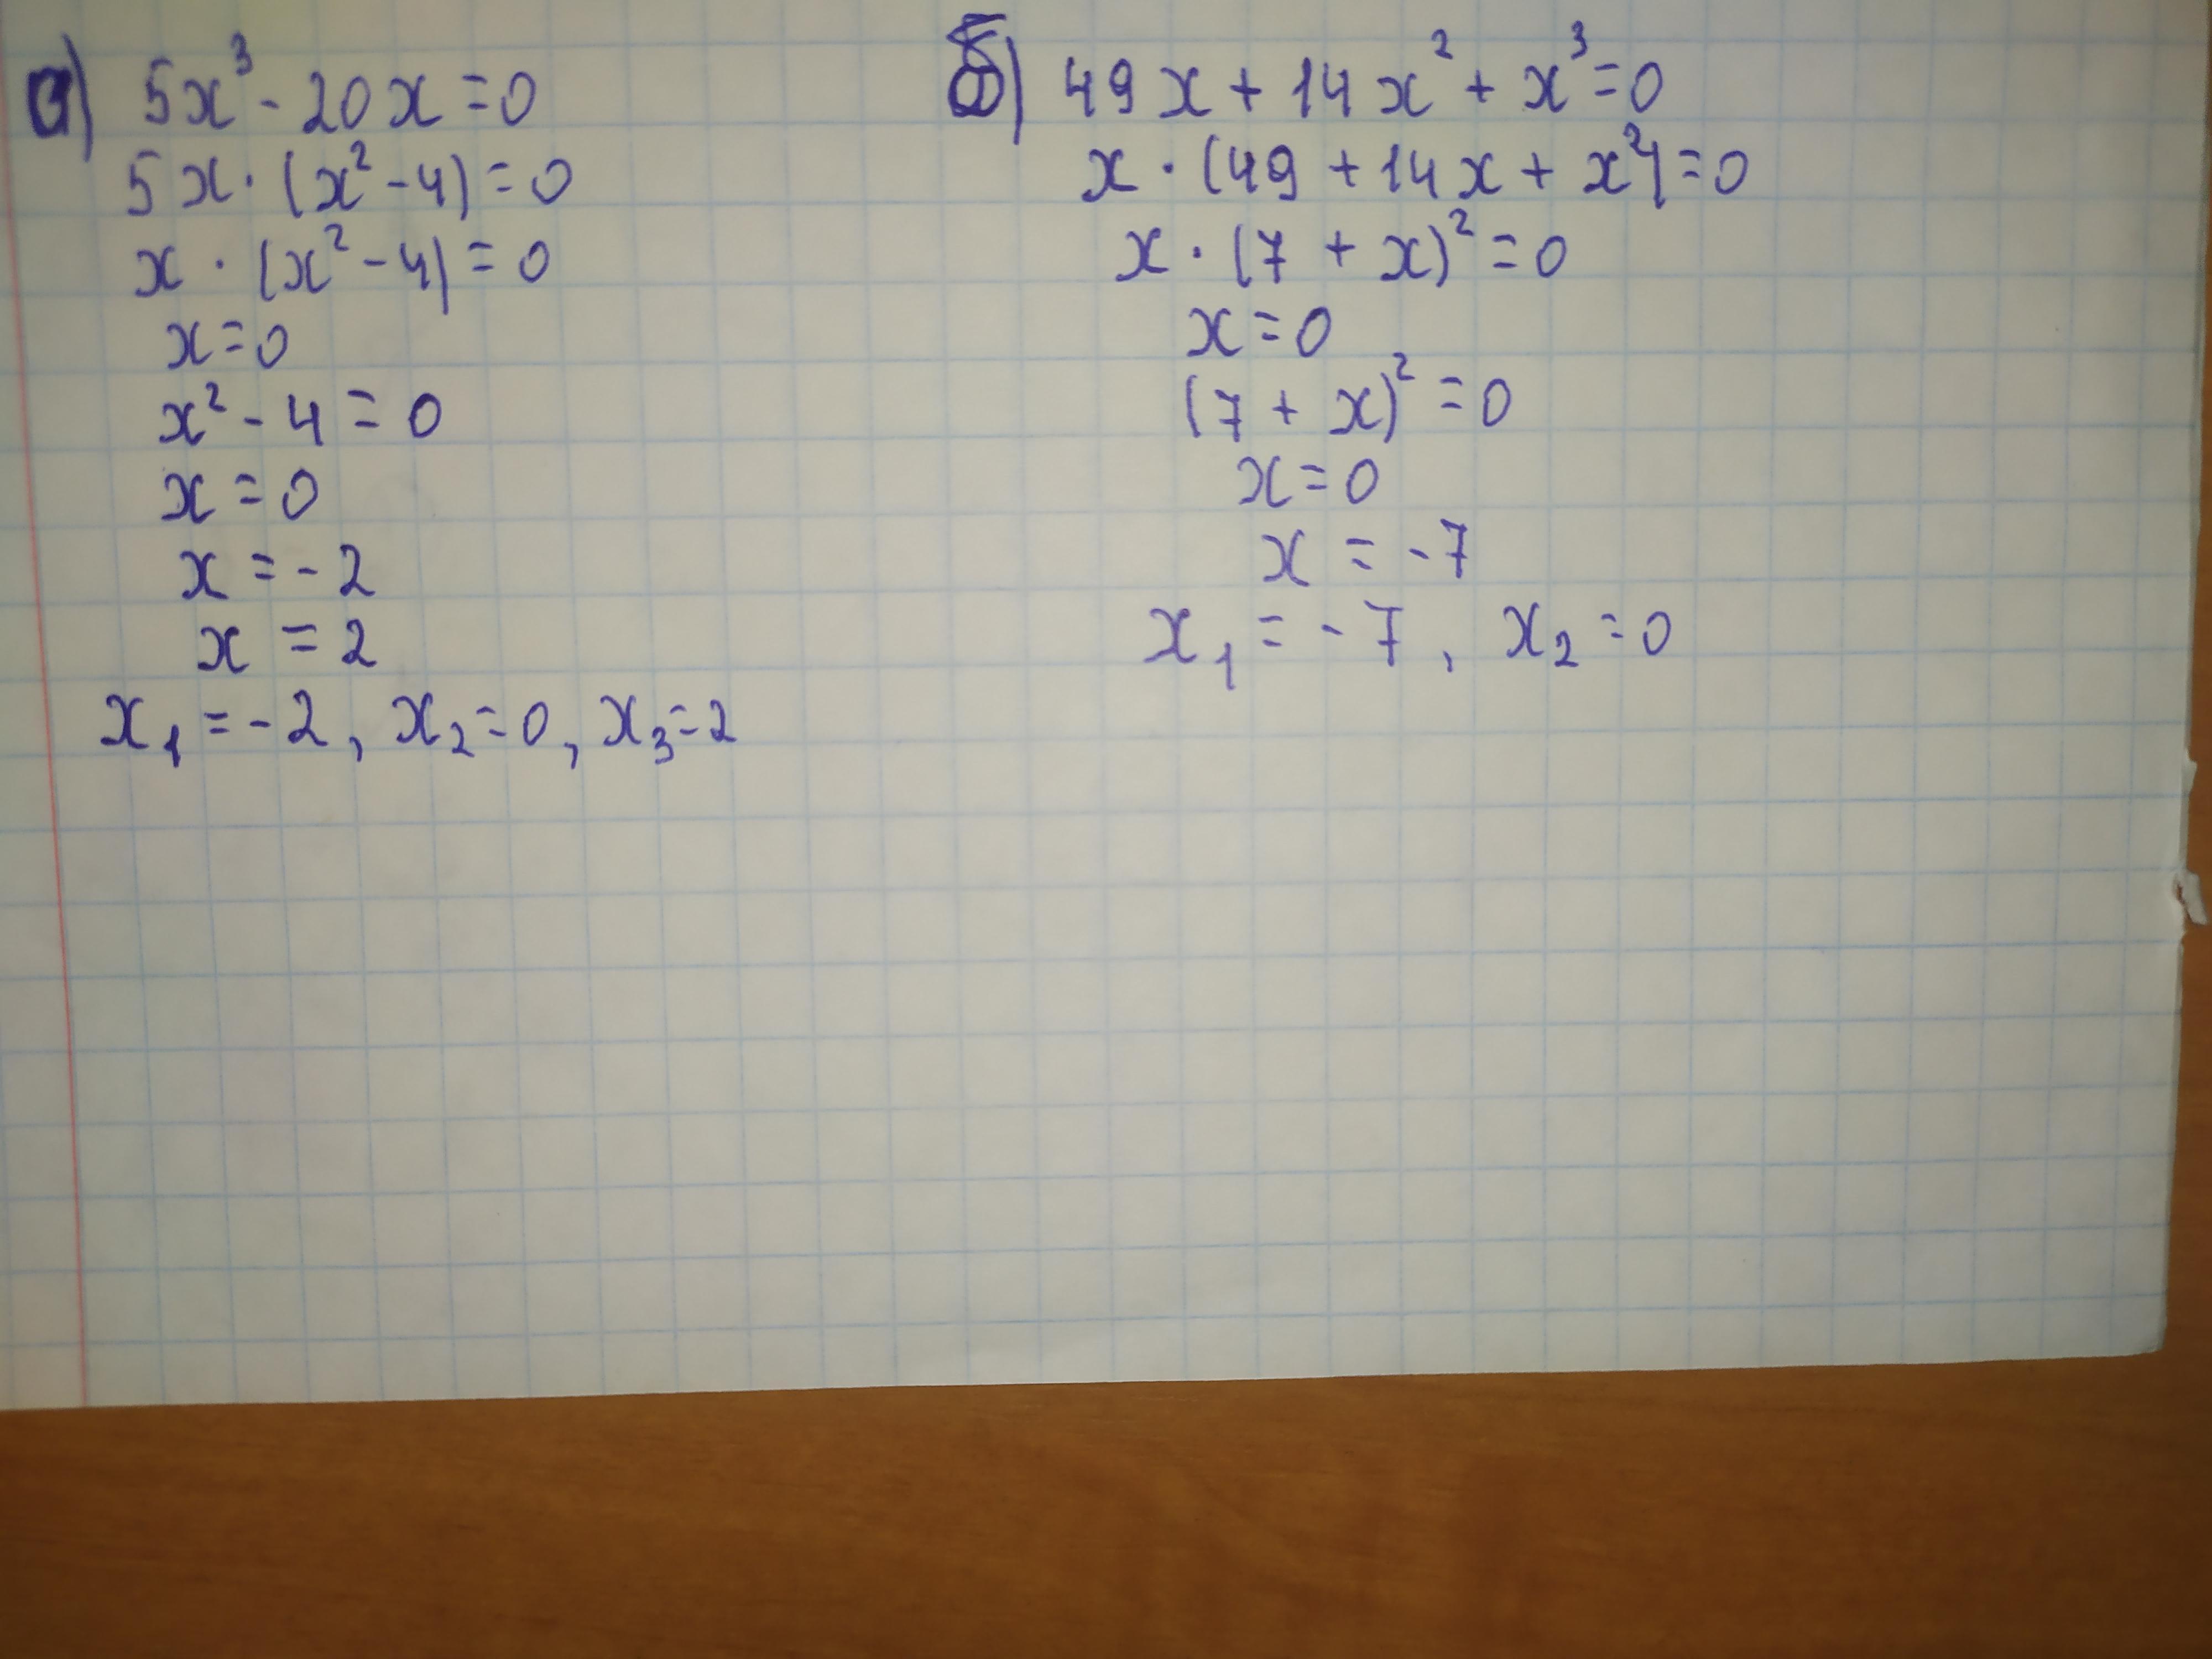 а) 5x³ - 20x = 0
5x · (x² - 4) = 0
x · (x² - 4) = 0
x = 0
x² - 4 = 0
x = 0
x = -2
x = 2
x₁ = -2, x₂ = 0, x₃ = 2
б) 49x + 14x² + x³ = 0
x · (49 + 14x + x²) = 0
x · (7 + x)² = 0
x = 0
(7 + x)² = 0
x = 0
x = -7
x₁ = -7, x₂ = 0